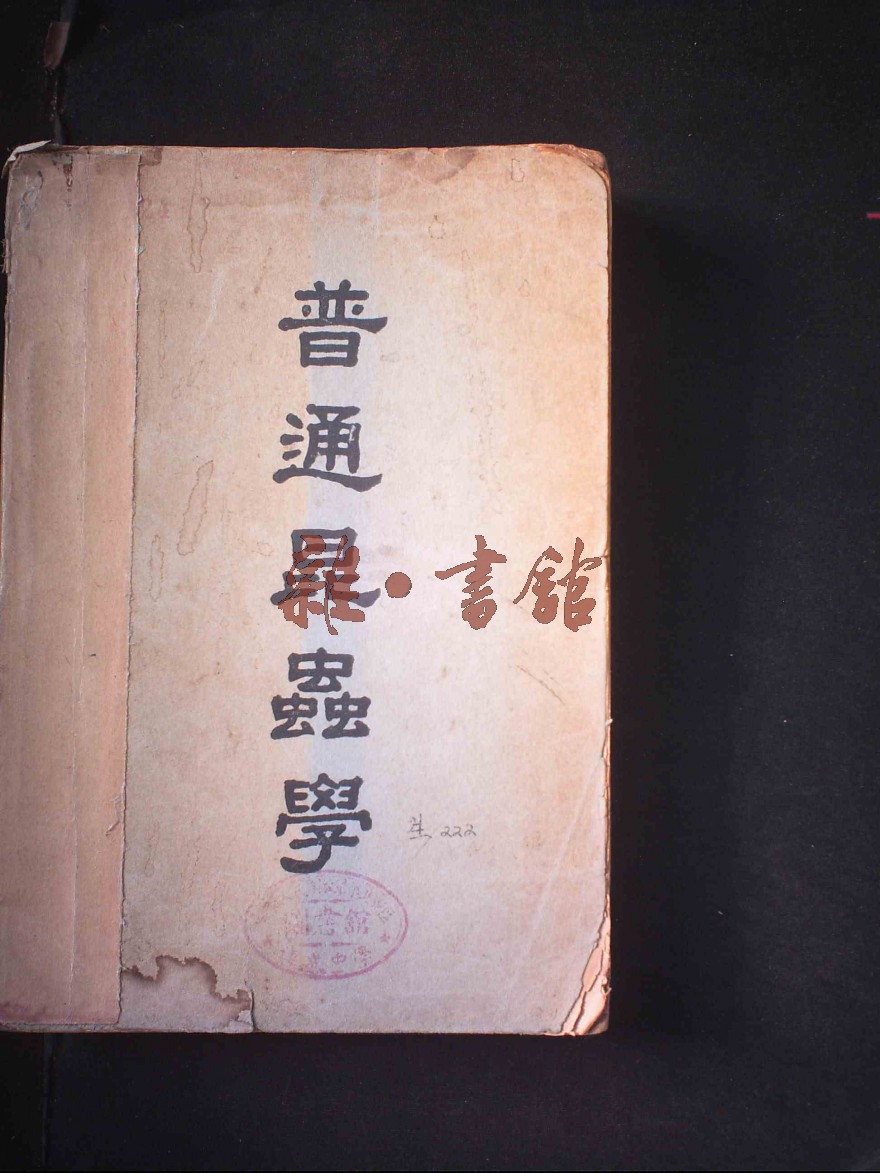 普通昆蟲學
雜·書館
生222
書館